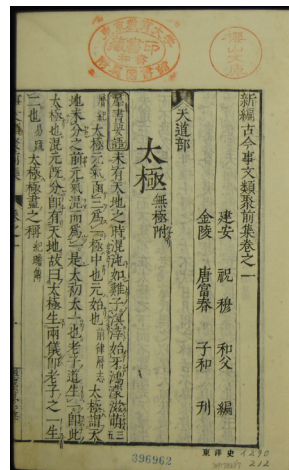 新編古今事文類聚前集卷之一
建安 祝穆 和父 編
金陵 唐富春 子和 刋
天道部
太極 無極附
羣書要語 未有天地之時混沌如雞子溟涬始牙鴻濛滋萌 三五
曆紀 太極元氣函三爲一極中也元始也 前律曆志 太極謂天
地未分之前元氣混而爲一是太初太一也老子道生一即此
太極也混元既分即有天地故曰太極生兩儀即老子之一生
二也 易疏 太極極盡之稱
396962
東洋史
1290
212